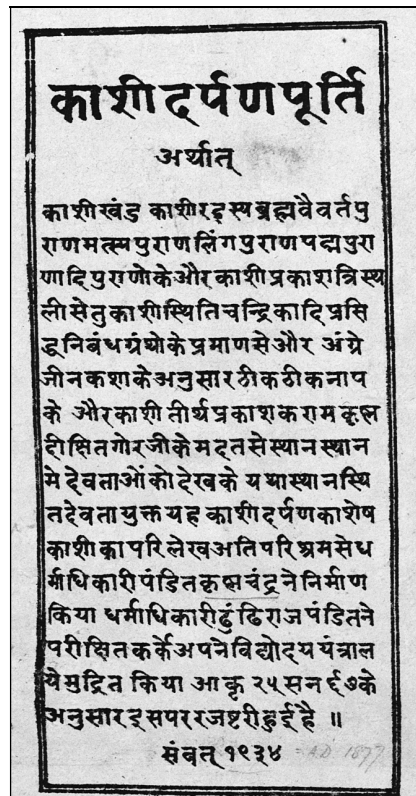 काशीदर्पणपूर्ति
अर्थात्
काशीखंड काशीरहस्यब्रह्मवैवर्तपु
राणमत्स्यपुराणलिंगपुराणपद्मपुरा
णादिपुराणोकेऔरकाशीप्रकाशत्रिस्थ
लीसेतुकाशीस्थितिचन्द्रिकादिप्रसि
द्धनिबंधग्रंथोकेप्रमाणसेऔर अंग्रे
जीनकशाकेअनुसारठीकठीकनाप
के औरकाशीतीर्थप्रकाशकरामकृष्ण
दीक्षितगोरजीकेमदतसेस्थानस्थान
मेदेवताओंकोदेखके यथास्थानस्थि
तदेवतायुक्तयहकाशीदर्पणकाशेष
काशीकापरिलेखअतिपरिश्रमसेध
र्माधिकारीपंडितकृष्णचंद्रनेनिर्माण
किया धर्माधिकारीढुंढिराजपंडितने
परीक्षितकर्केअपनेविद्योदययंत्राल
येमुद्रित किया आकृ २५सन ६७के
अनुसारइसपररजष्टरीहुईहै ॥
संवत् १९३४ AD 1877